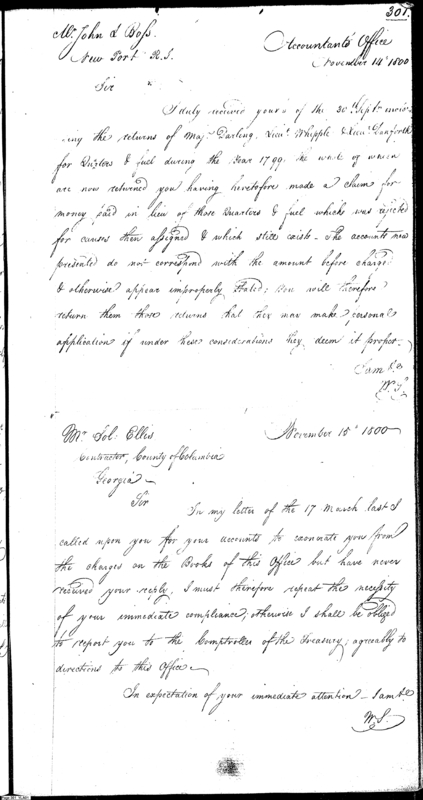 301.
Mr. John L Boss.
New Port R.I.
Accountant's Office
November 14th 1800
Sir
I duly received your's of the 30th Septr
the returns of Majr. Darling, Lieut. Whipple & Lieut. Danforth
for Quarters & fuel during the Year 1799. the whole of which
are now returned you having heretofore made a claim for
money paid in lieu of those Quarters & fuel which was rejected
for causes then assigned & which still exists - The accounts now
presented do not correspond with the amount before charged
& otherwise appear improperly stated; you will therefore
return them those returns that they may make personal
application if under these considerations they deem it proper.
I am &c
W. S.
Mr. Sol: Ellis
November 15th 1800
Contractor, County of Columbia
Georgia
Sir
In my letter of the 17 March last I
called upon you for your accounts to exonerate you from
the charges on the Books of this Office but have never
received your reply. I must therefore repeat the necessity
of your immediate compliance; otherwise I shall be obliged
to report you to the Comptroller of the Treasury; agreeably to
directions to this Office
In expectation of your immediate attention - I am &c
W. S.